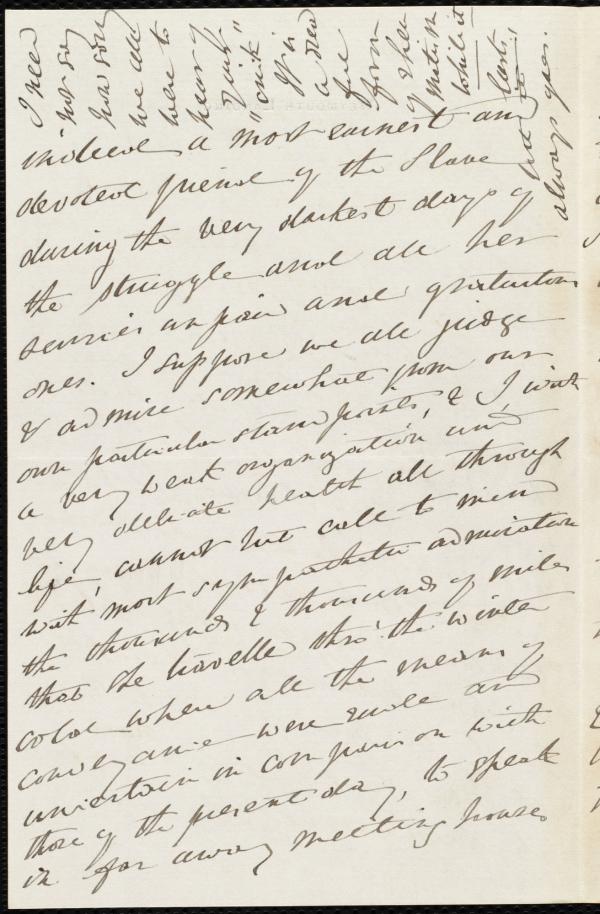 indeed a most earnest and
devoted friend of the Slave
during the very darkest days of
the struggle and all her
services unpaid and gratuitous
ones. I suppose we all judge
& admire somewhat from our
own particular stand points, & I, with
a very weak organization and
very delicate health all through
life, cannot but call to mind
with most sympathetic admiration
the thousands & thousands of miles
that she travelled thro' the winter
cold when all the means of
conveyance were rude and
uncertain in comparison with
those of the present day, to speak
in far away meeting houses
I need
not say
how sorry
we all
were to
hear of
"
It is
a
form
of
last,
always yrs.